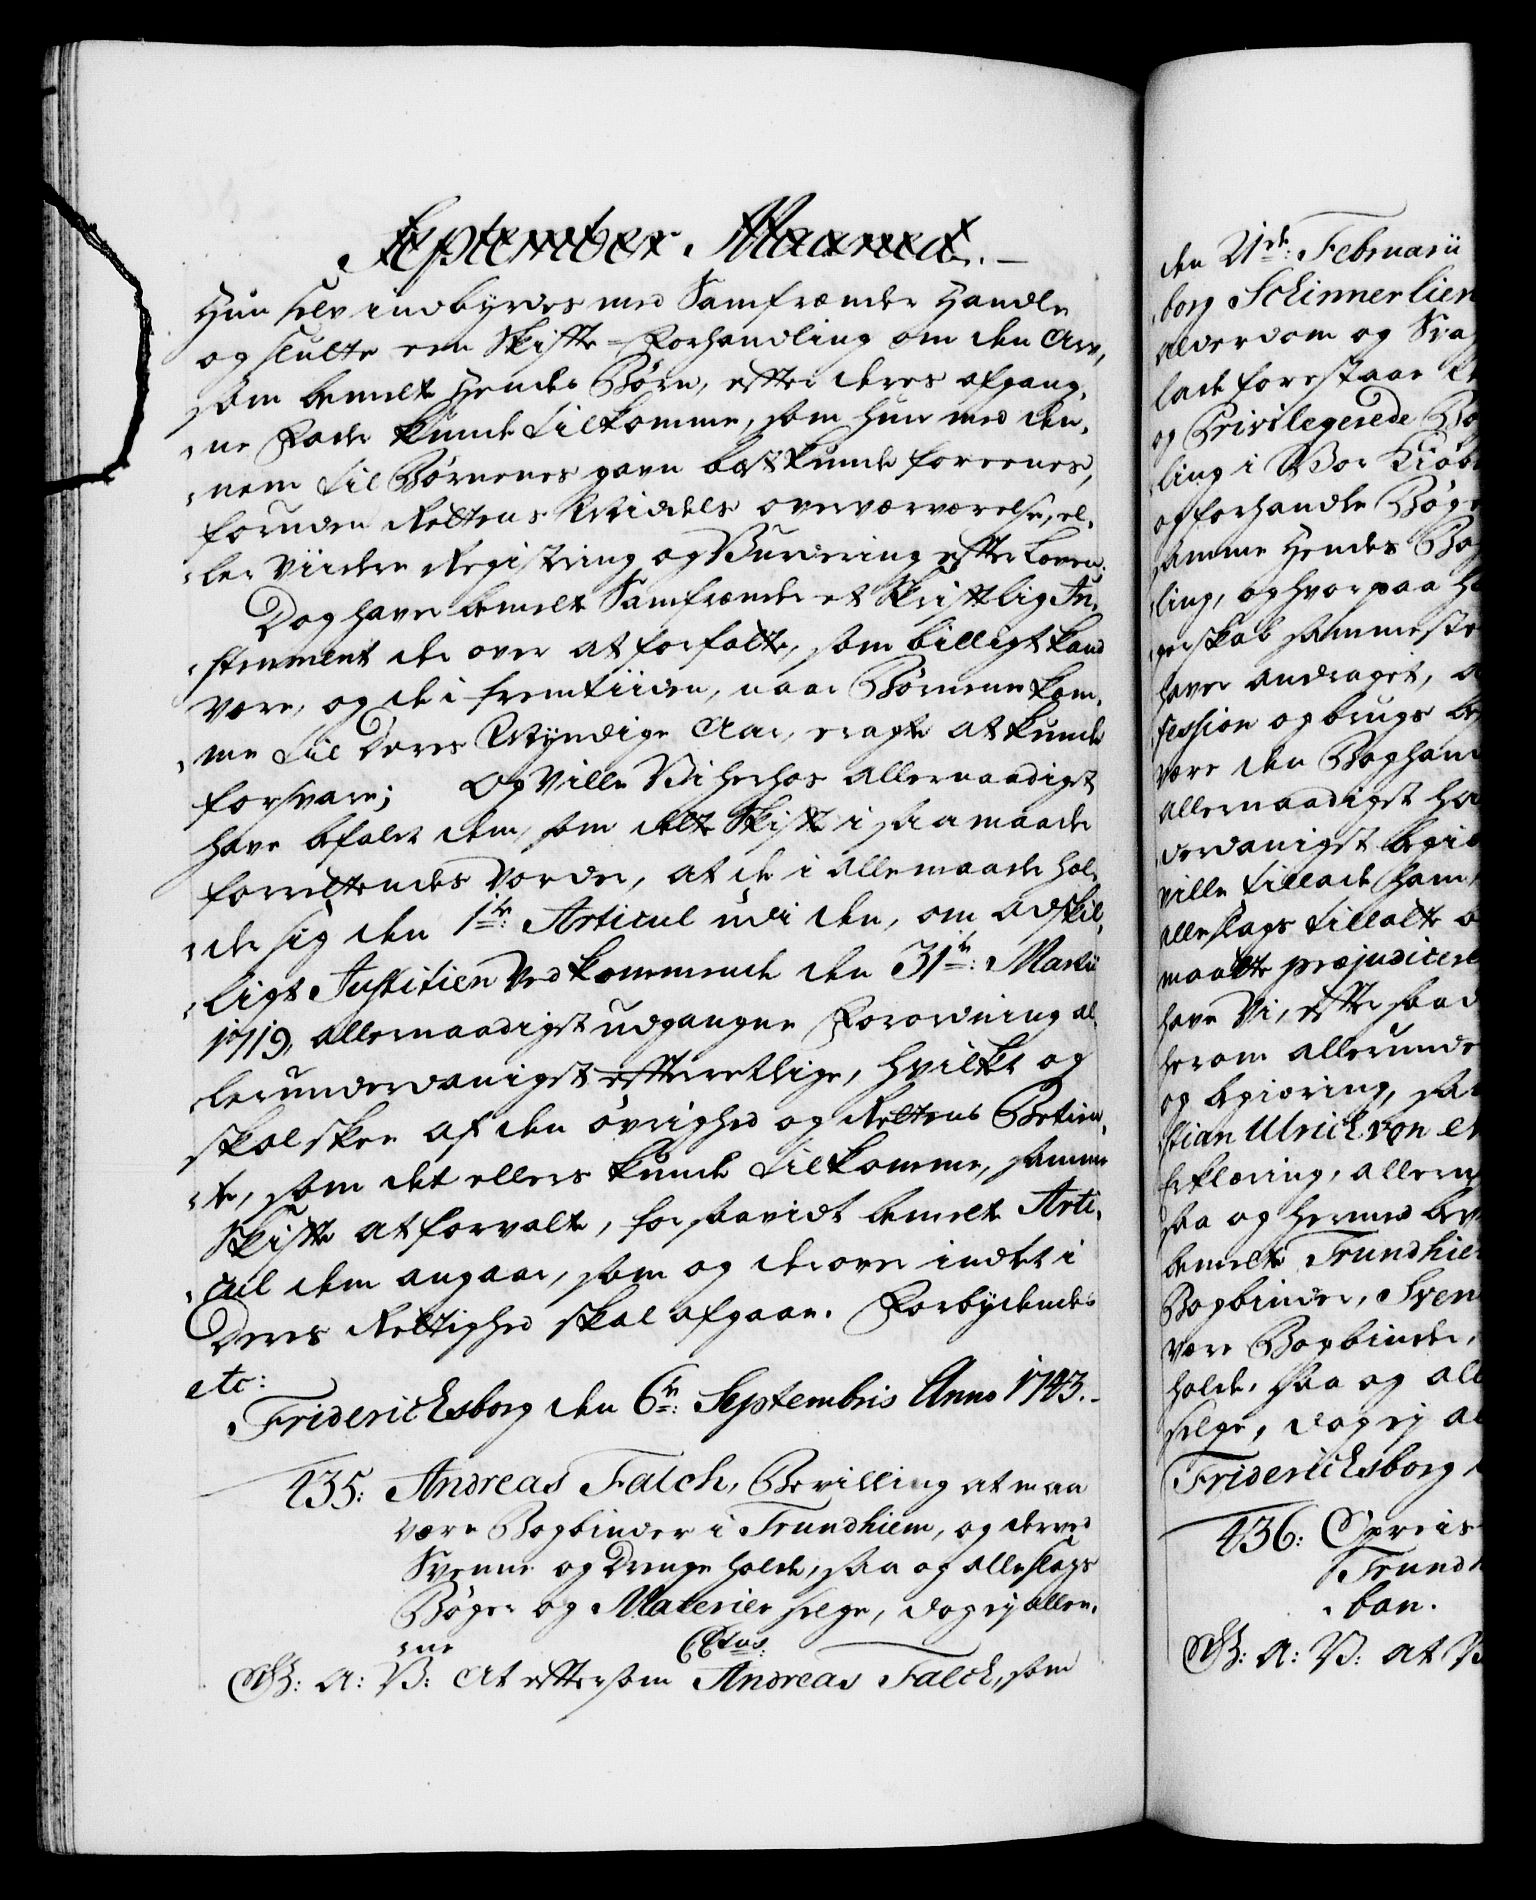 September Maaned.
Hun selv indbyrdes med Samfrænder Handle
og slutte een Skifte-Forhandling om den Arv,
som bemelte Hendes Børn, efter deres afgang,
ne Fader kunde tilkomme, som hun med den,
nem til Børnenes gavn best kunde foreenes,
foruden Rettens Middels overværværelse, el,
ler Viidere Registering og Vurdering efter Loven;
Dog haver bemelte Samfrænder et Skriftlig In,
strument der over at forfatte, som billigt kand
være, og de i fremtiiden, naar Børnene kom,
me til Deres Myndige Aar, eragte at kunde
forsvare; Og Ville Vi herhos allernaadigst
have befalet dem, som dette Skifte i saa maade
forrettendes Vorder, at de i alle maade hol,
de sig den 1te: Articul udi den, om adskil,
ligt Justitien Vedkommende den 31te: Martii
1719, allernaadigst udgangne Forordning al,
lerunderdanigst efterretlige, hvilket og
skal skee af den øvrighed og Rettens Betien,
te, som det ellers kunde tilkomme, samme
Skifte at forvalte, forsaavidt bemelte Arti,
cul dem angaar, som og derover indtet i
Deres Rettighed skal afgaae. Forbydendes
etc:
Friderichsborg den 6te: Septembris Anno 1743.
435: Andreas Falch, Bevilling at maa
være Bogbinder i Trundhiem, og derved
Svenne og Drenge holde, saa og alle slags
Bøger og Materier selge, dog ej allee,
ne
CCtus:
G: A: V: At eftersom Andreas Falch, som
den 21de: Februarii
borg Schinnerlien
alderdom og Svag
lade forestaae
og Privilegerede Bog
ling i Vor Kiøb
og forhandle Bøger
samme Hendes Bog
ling, og hvorpaa
gerskab sammested
haver andraget,
fession og brugs
være den Boghand
allernaadigst
derdanigst begie
ville tillade ham,
alle slags tillatte
maatte præjudicere
have Vi, efter saad
herom allerunde
og begiering,
stian Ulrich von
Erklæring, allern
saa og hermed bev
bemelte Trundhiem
Bogbinder, Sven
være Bogbinder,
holde, saa og all
selge, dog ej al
Friderichsborg
436: Opreis
Trundh
ban.
G: A: V: at V